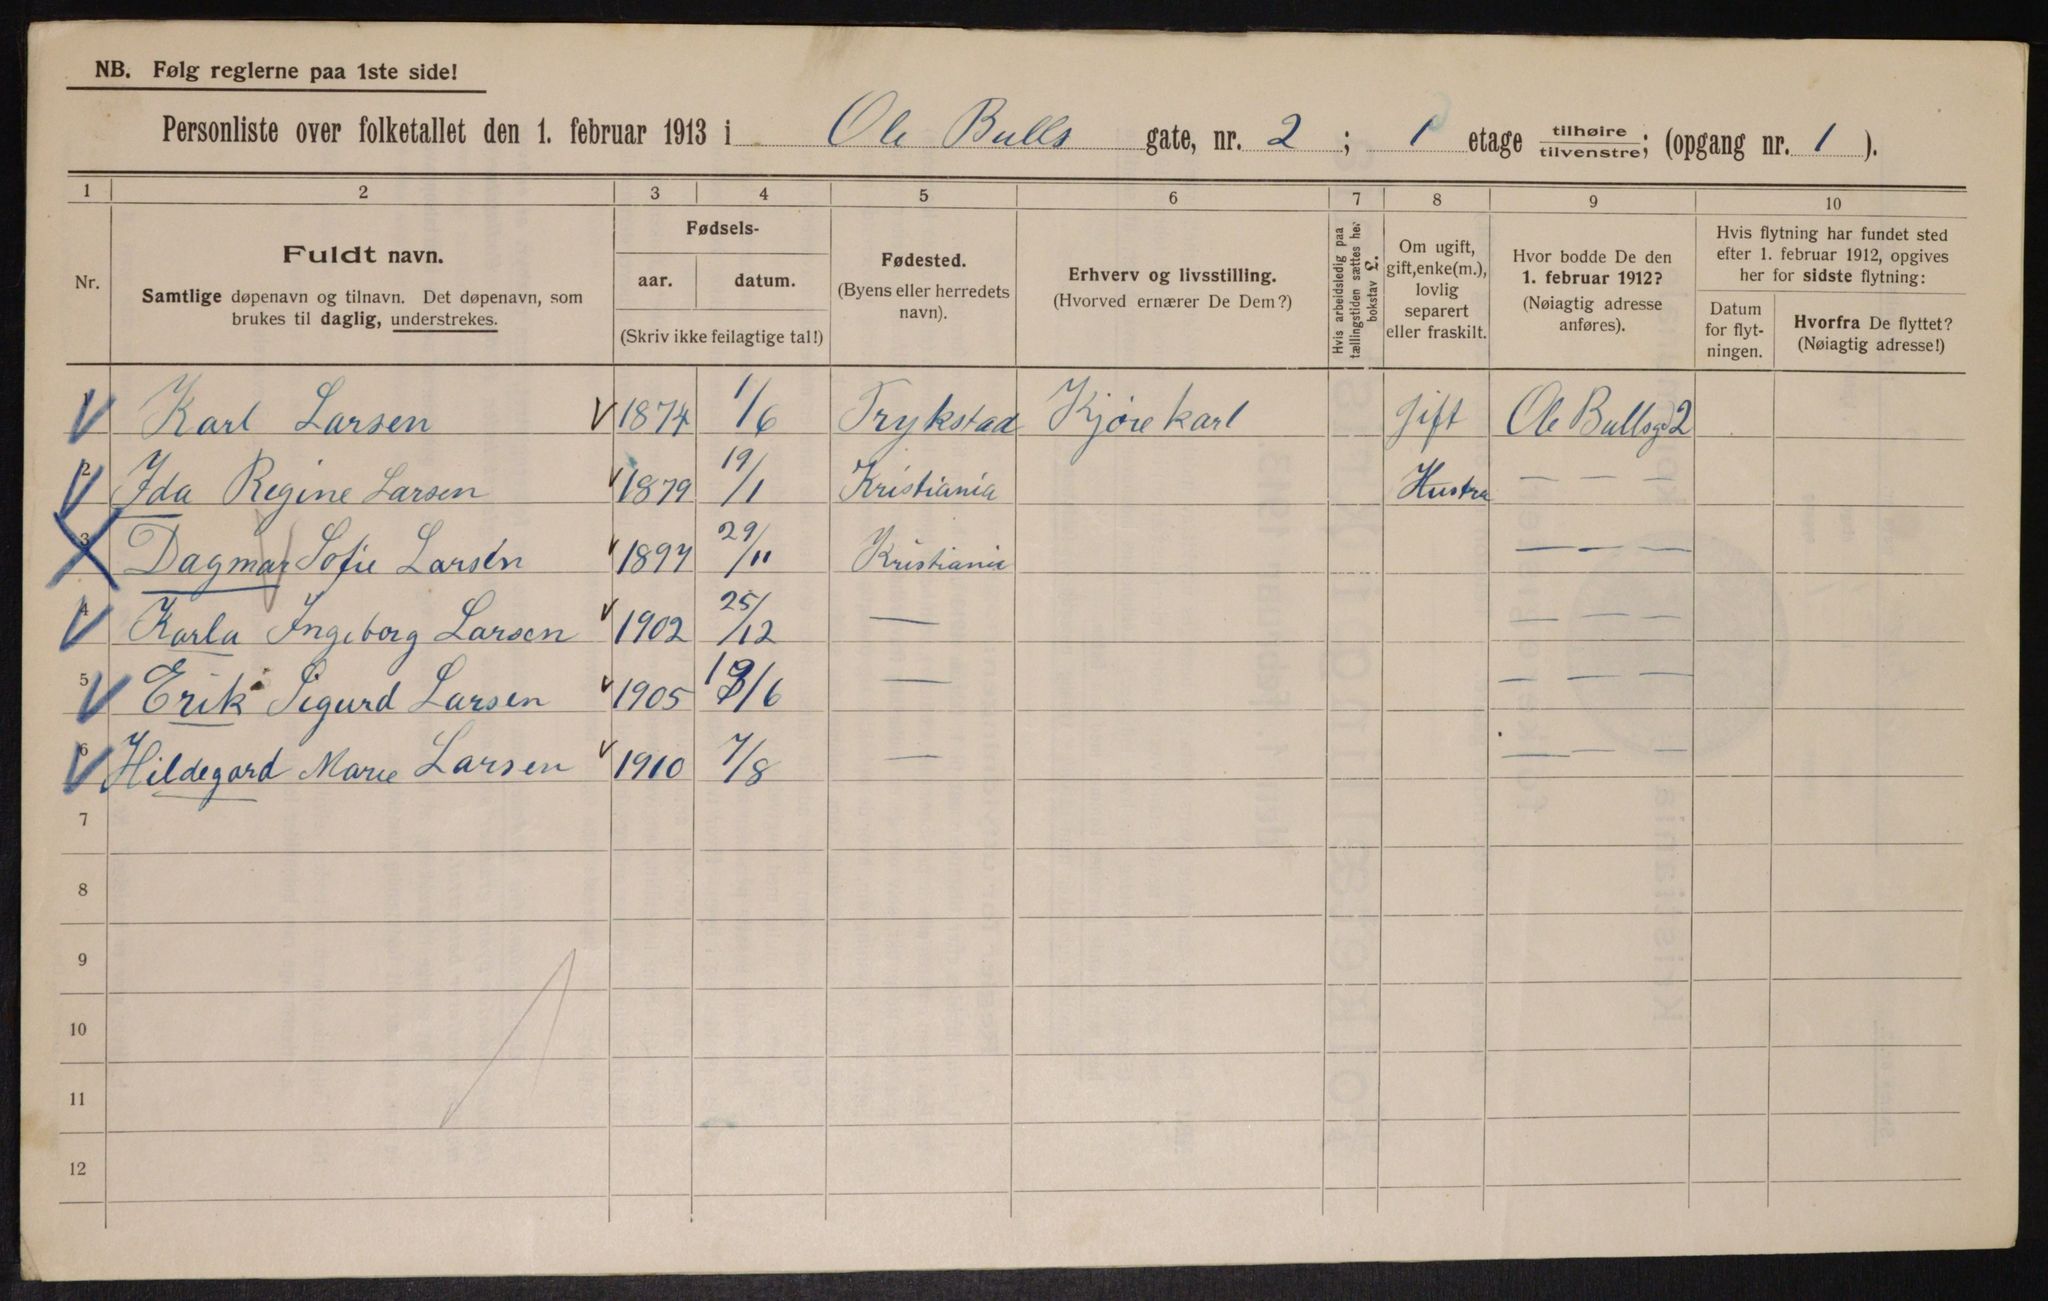 NB. Følg reglerne paa 1ste side!
Personliste over folketallet den 1. februar 1913 i Ole Bulls gate, nr. 2 ; 1 etage tilhøire/tilvenstre; (opgang nr. 1 ).
1 2 3 4 5 6 7 8 9 10
Nr.
Fuldt navn.
Samtlige døpenavn og tilnavn. Det døpenavn, som
brukes til daglig, understrekes.
Fødsels-
aar. datum.
(Skriv ikke feilagtige tal!)
Fødested.
(Byens eller herredets
navn).
Erhverv og livsstilling.
(Hvorved ernærer De Dem?)
Hvis arbeidsledig paa
tællingstiden sættes her
bokstav L.
Om ugift,
gift, enke(m.),
lovlig
separert
eller fraskilt.
Hvor bodde De den
1. februar 1912?
(Nøiagtig adresse
anføres).
Hvis flytning har fundet sted
efter 1. februar 1912, opgives
her for sidste flytning:
Datum
for flyt-
ningen.
Hvorfra De flyttet?
(Nøiagtig adresse!)
Karl Larsen 1874 1/6 Trykstad Kjørekarl gift Ole Bullsg 2
2 Ida Regine Larsen 1879 19/1 Kristiania Hustru — — —
3 Dagmar Sofie Larsen 1897 29/11 Kristiania — — —
4 Karla Ingeborg Larsen 1902 25/12 — — — —
5 Erik Sigurd Larsen 1905 /6 — — — —
6 Hildegard Marie Larsen 1910 7/8 — — — —
7
8
9
10
11
12